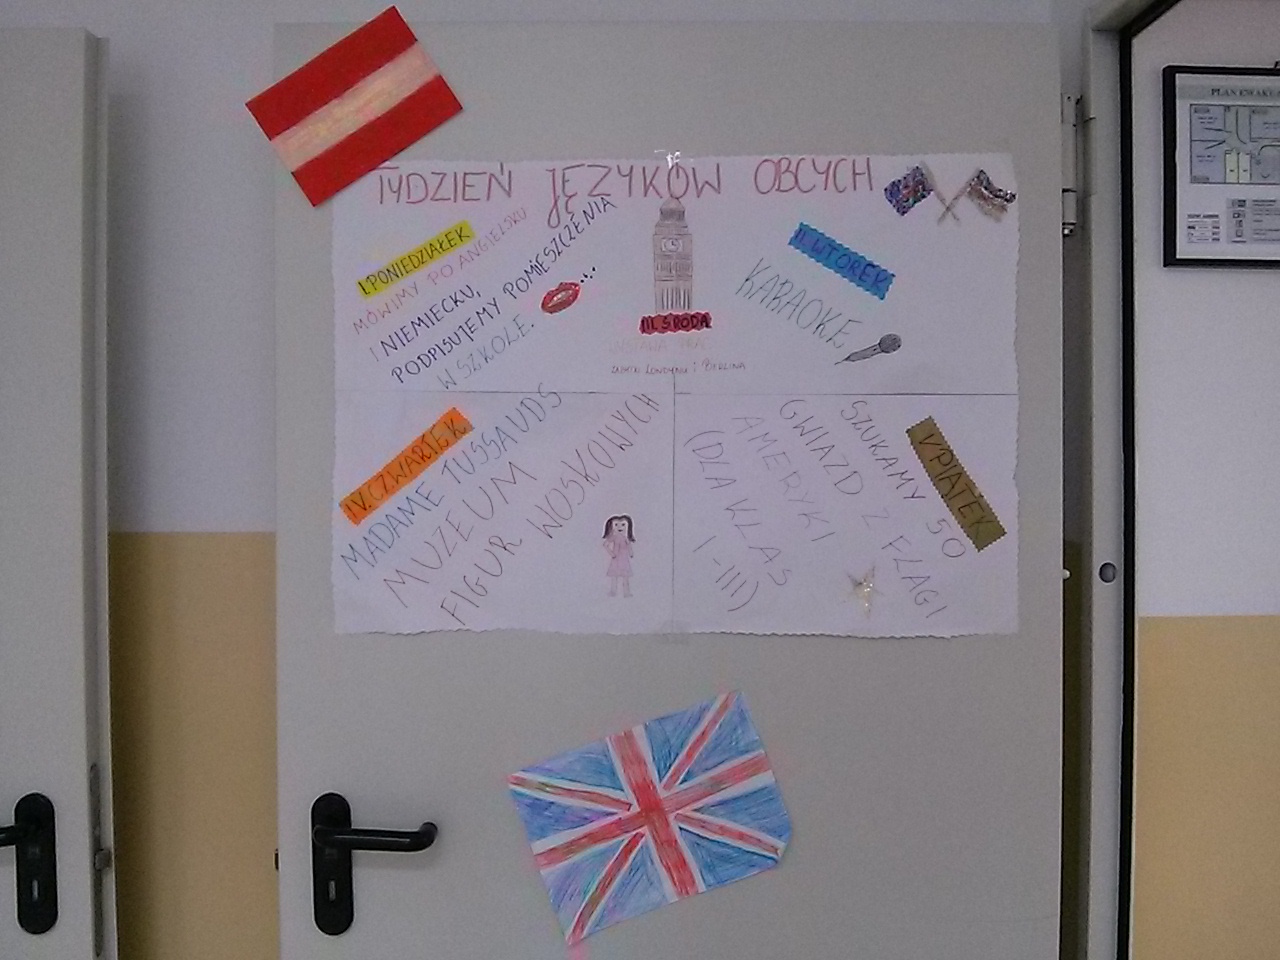 TYDZIEŃ JĘZYKÓW OBCYCH
I. PONIEDZIAŁEK
MÓWIMY PO ANGIELSKU
I NIEMIECKU,
PODPISUJEMY POMIESZCZENIA
W SZKOLE.
II. WTOREK
KARAOKE
III. ŚRODA
WYSTAWA PRAC
LONDYNU I BERLINA
IV. CZWARTEK
MADAME TUSSAUDS
MUZEUM
FIGUR WOSKOWYCH
V PIĄTEK
SZUKAMY 50
GWIAZD Z FLAGI
AMERYKI
(DLA KLAS
I-III)
PLAN EWAKU